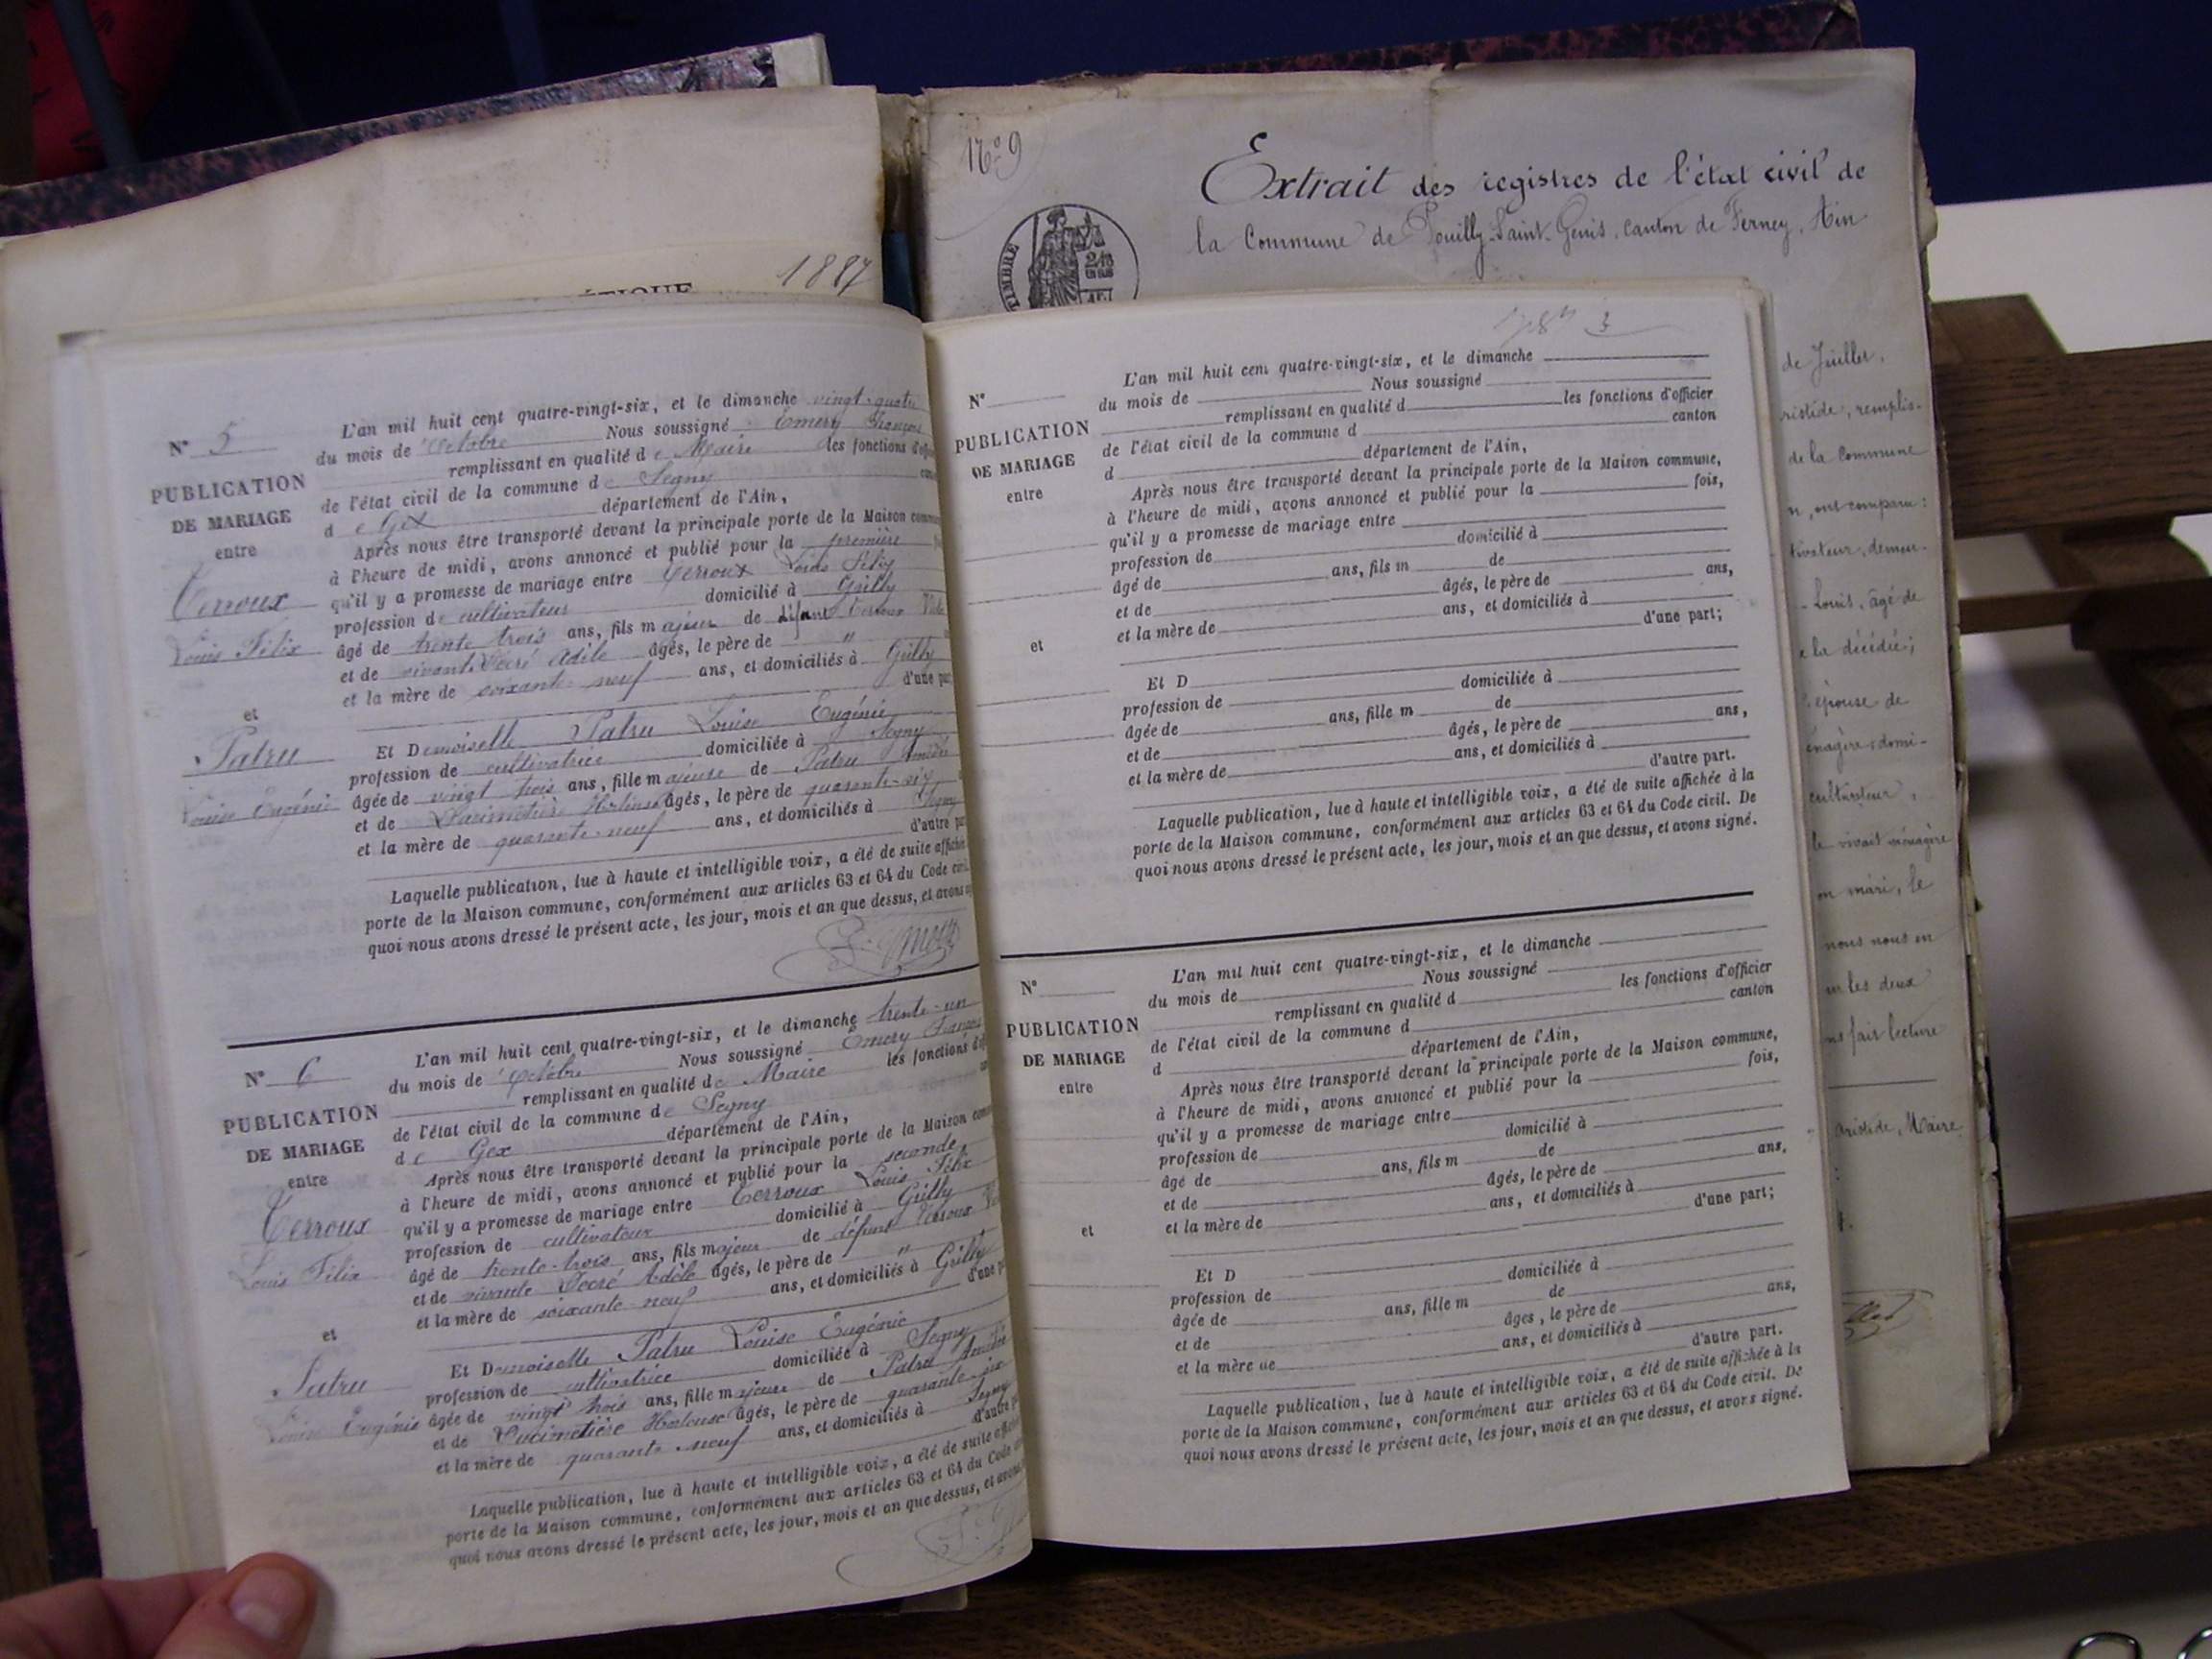 1887
N° 9
Extrait des registres de l'état civil de
la Commune de Pouilly-Saint-Genis, canton de Ferney, Ain
TIMBRE
N° 5
PUBLICATION
DE MARIAGE
entre
Verroux
Louis Félix
et
Patru
Louise Eugénie
L'an mil huit cent quatre-vingt-six, et le dimanche vingt-quatre
du mois de Octobre Nous soussigné Emery François
remplissant en qualité de Maire les fonctions
de l'état civil de la commune de Segny
de Gex département de l'Ain,
Après nous être transporté devant la principale porte de la Maison
à l'heure de midi, avons annoncé et publié pour la première
qu'il y a promesse de mariage entre Verroux Louis Félix
profession de cultivateur domicilié à Grilly
âgé de trente trois ans, fils majeur de défunt Verroux
et de vivante Adèle âgés, le père de "
et la mère de soixante-neuf ans, et domiciliés à Grilly
d'une
Et Demoiselle Patru Louise Eugénie
profession de cultivatrice domiciliée à Segny
âgée de vingt trois ans, fille majeure de Patru
et de Hortense âgés, le père de quarante-six
et la mère de quarante-neuf ans, et domiciliés à Segny
d'autre
Laquelle publication, lue à haute et intelligible voix, a été de suite affichée
porte de la Maison commune, conformément aux articles 63 et 64 du Code
quoi nous avons dressé le présent acte, les jour, mois et an que dessus, et avons
N° 6
PUBLICATION
DE MARIAGE
entre
Verroux
Louis Félix
et
Patru
Louise Eugénie
L'an mil huit cent quatre-vingt-six, et le dimanche trente-un
du mois de Octobre Nous soussigné Emery François
remplissant en qualité de Maire les fonctions
de l'état civil de la commune de Segny
de Gex département de l'Ain,
Après nous être transporté devant la principale porte de la Maison
à l'heure de midi, avons annoncé et publié pour la seconde
qu'il y a promesse de mariage entre Verroux Louis Félix
profession de cultivateur domicilié à Grilly
âgé de trente-trois ans, fils majeur de défunt Verroux
et de vivante Adèle âgés, le père de "
et la mère de soixante-neuf ans, et domiciliés à Grilly
d'une
Et Demoiselle Patru Louise Eugénie
profession de cultivatrice domiciliée à Segny
âgée de vingt trois ans, fille majeure de Patru
et de Hortense âgés, le père de quarante-six
et la mère de quarante-neuf ans, et domiciliés à Segny
d'autre
Laquelle publication, lue à haute et intelligible voix, a été de suite
porte de la Maison commune, conformément aux articles 63 et 64 du Code
quoi nous avons dressé le présent acte, les jour, mois et an que dessus, et avons
N°
PUBLICATION
DE MARIAGE
entre
et
L'an mil huit cent quatre-vingt-six, et le dimanche
du mois de Nous soussigné
remplissant en qualité d les fonctions d'officier
de l'état civil de la commune d canton
d département de l'Ain,
Après nous être transporté devant la principale porte de la Maison commune,
à l'heure de midi, avons annoncé et publié pour la fois,
qu'il y a promesse de mariage entre
profession de domicilié à
âgé de ans, fils m de
et de âgés, le père de ans,
et la mère de ans, et domiciliés à
d'une part;
Et D
profession de domiciliée à
âgée de ans, fille m de
et de âgés, le père de ans,
et la mère de ans, et domiciliés à
d'autre part.
Laquelle publication, lue à haute et intelligible voix, a été de suite affichée à la
porte de la Maison commune, conformément aux articles 63 et 64 du Code civil. De
quoi nous avons dressé le présent acte, les jour, mois et an que dessus, et avons signé.
N°
PUBLICATION
DE MARIAGE
entre
et
L'an mil huit cent quatre-vingt-six, et le dimanche
du mois de Nous soussigné
remplissant en qualité d les fonctions d'officier
de l'état civil de la commune d canton
d département de l'Ain,
Après nous être transporté devant la principale porte de la Maison commune,
à l'heure de midi, avons annoncé et publié pour la fois,
qu'il y a promesse de mariage entre
profession de domicilié à
âgé de ans, fils m de
et de âgés, le père de ans,
et la mère de ans, et domiciliés à
d'une part;
Et D
profession de domiciliée à
âgée de ans, fille m de
et de âgés, le père de ans,
et la mère de ans, et domiciliés à
d'autre part.
Laquelle publication, lue à haute et intelligible voix, a été de suite affichée à la
porte de la Maison commune, conformément aux articles 63 et 64 du Code civil. De
quoi nous avons dressé le présent acte, les jour, mois et an que dessus, et avons signé.
de Juillet,
de la commune
Louis, âgé de
décédée;
épouse de
le vivait ménagère
mari, le
les deux
fait lecture
Aristide, Maire